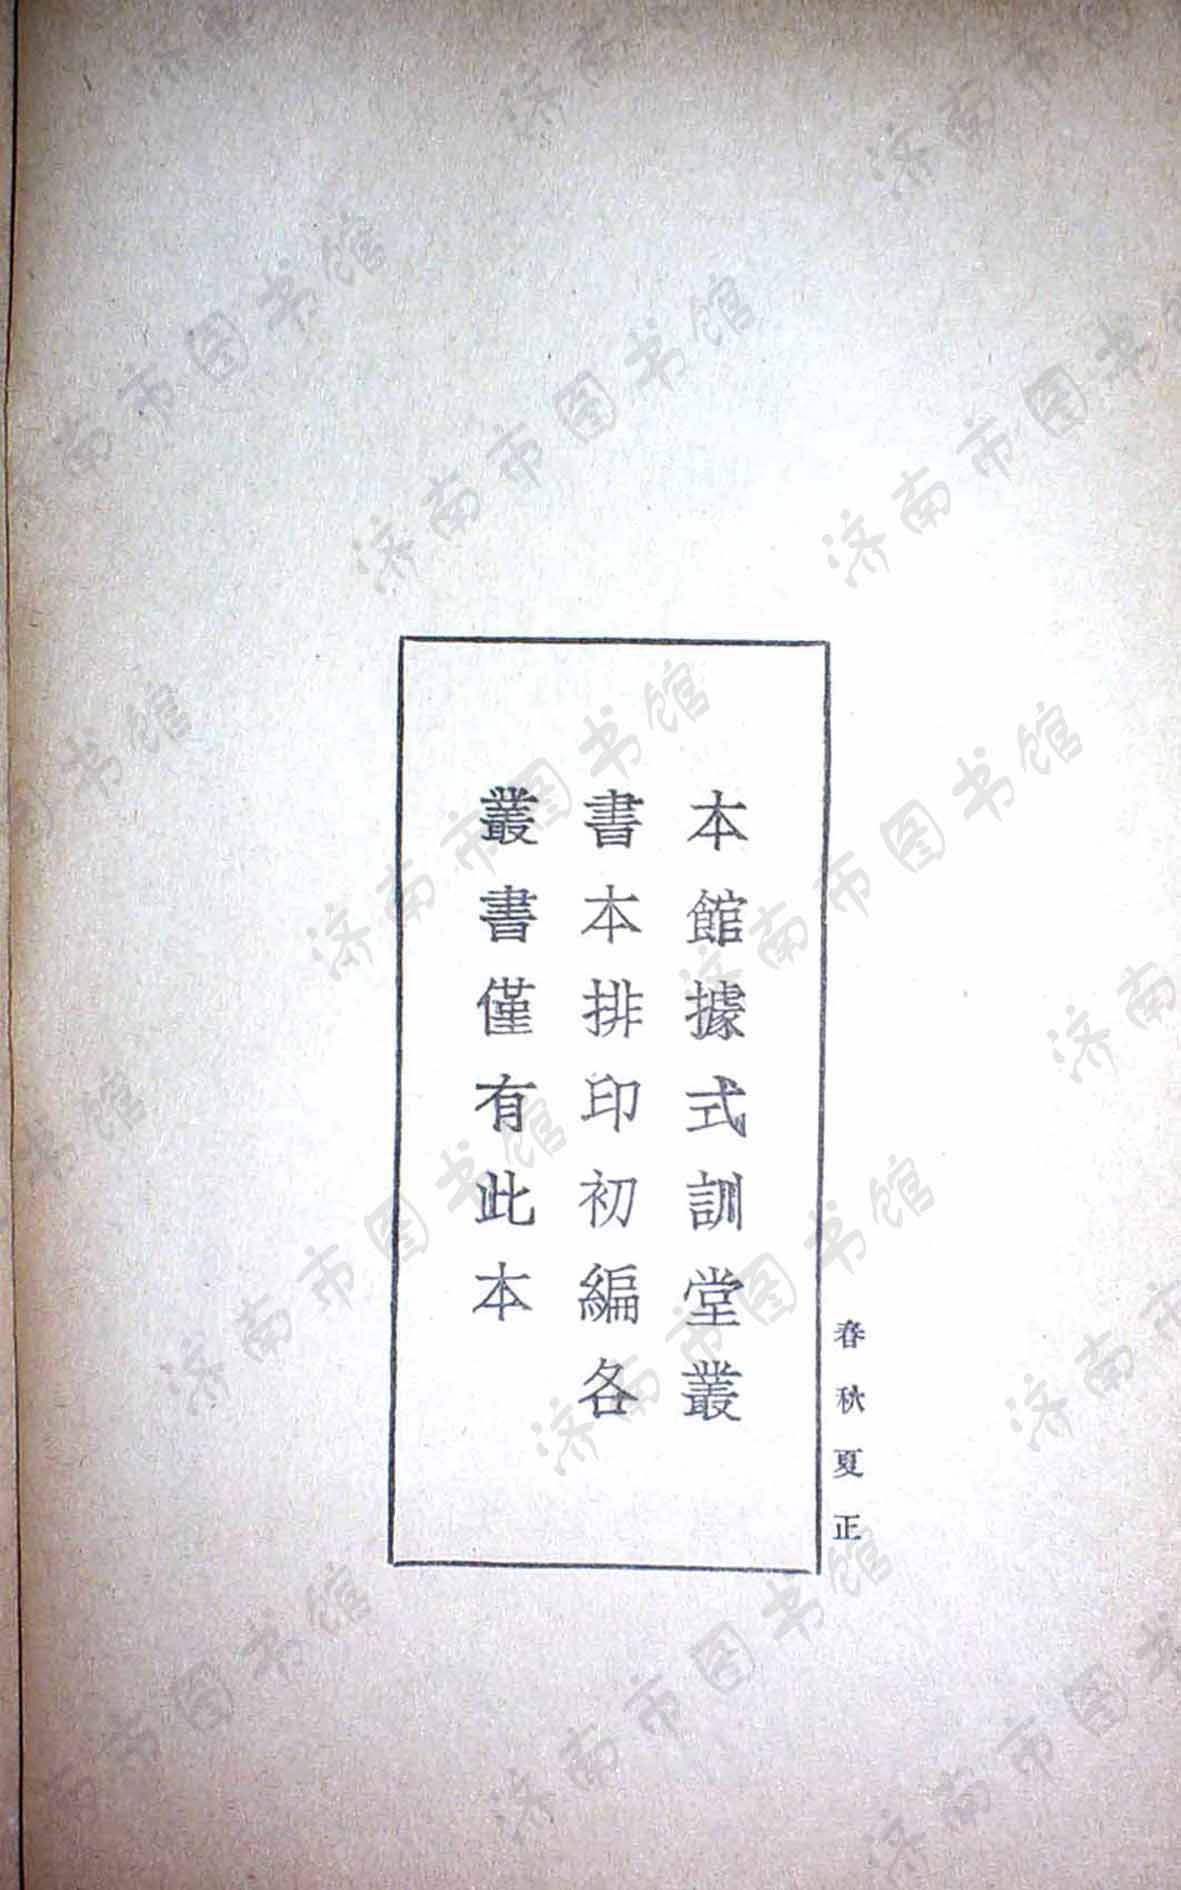 春秋夏正
本館據式訓堂叢
書本排印初編各
叢書僅有此本
济南市图书馆